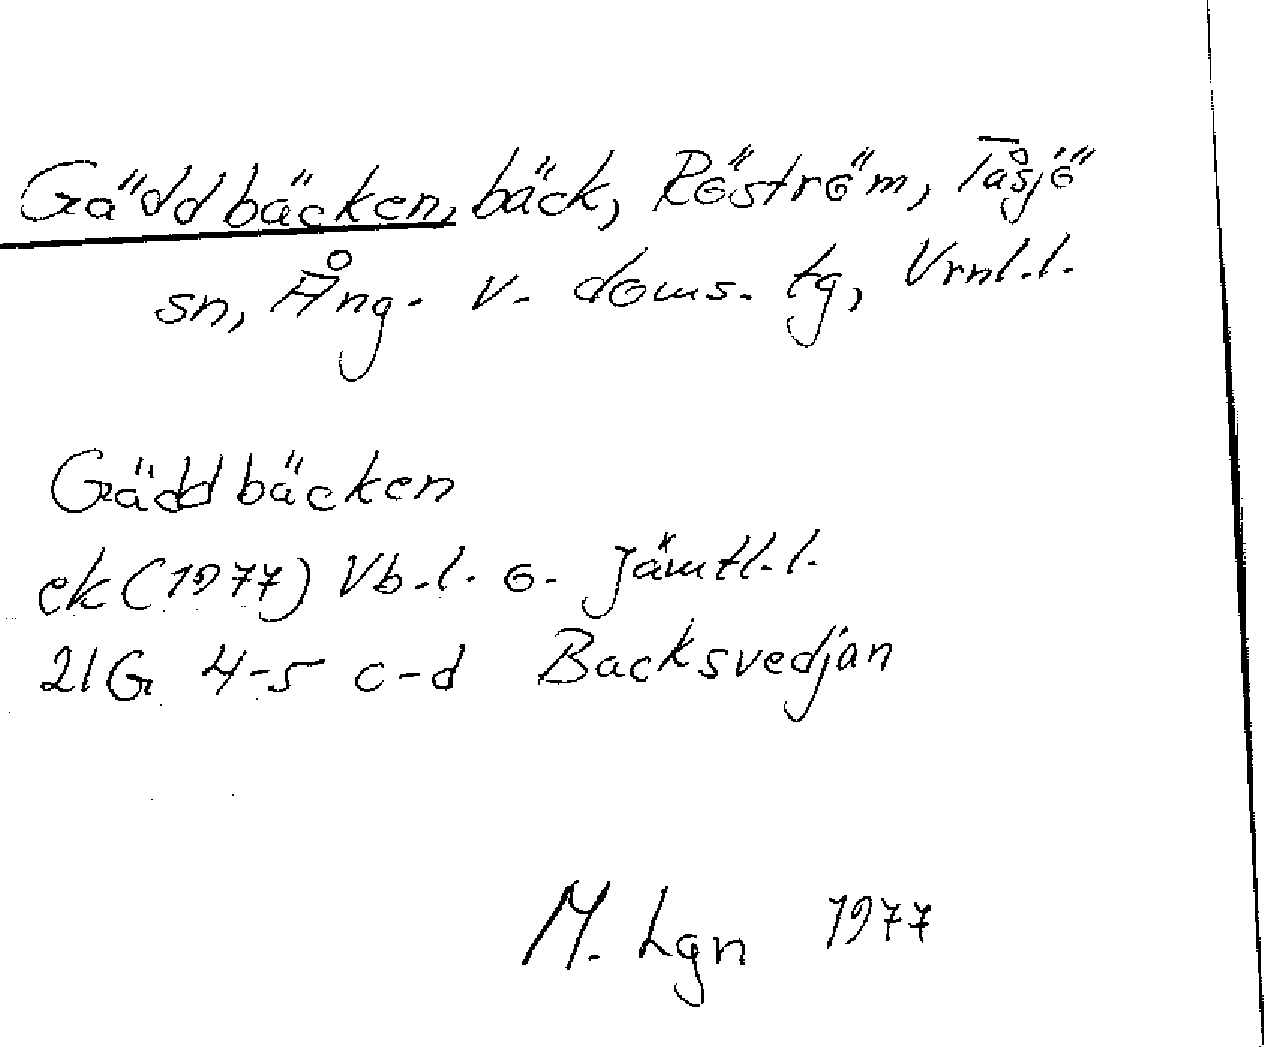 Gäddbäcken, bäck, Röström, Tåsjö
sn, Ång. v. doms. tg, Vrnl.l.
Gäddbäcken
ek (1977) Vb.l. o. Jämtl.l.
21G 4-5 c-d Backsvedjan
M. Lgn 1977